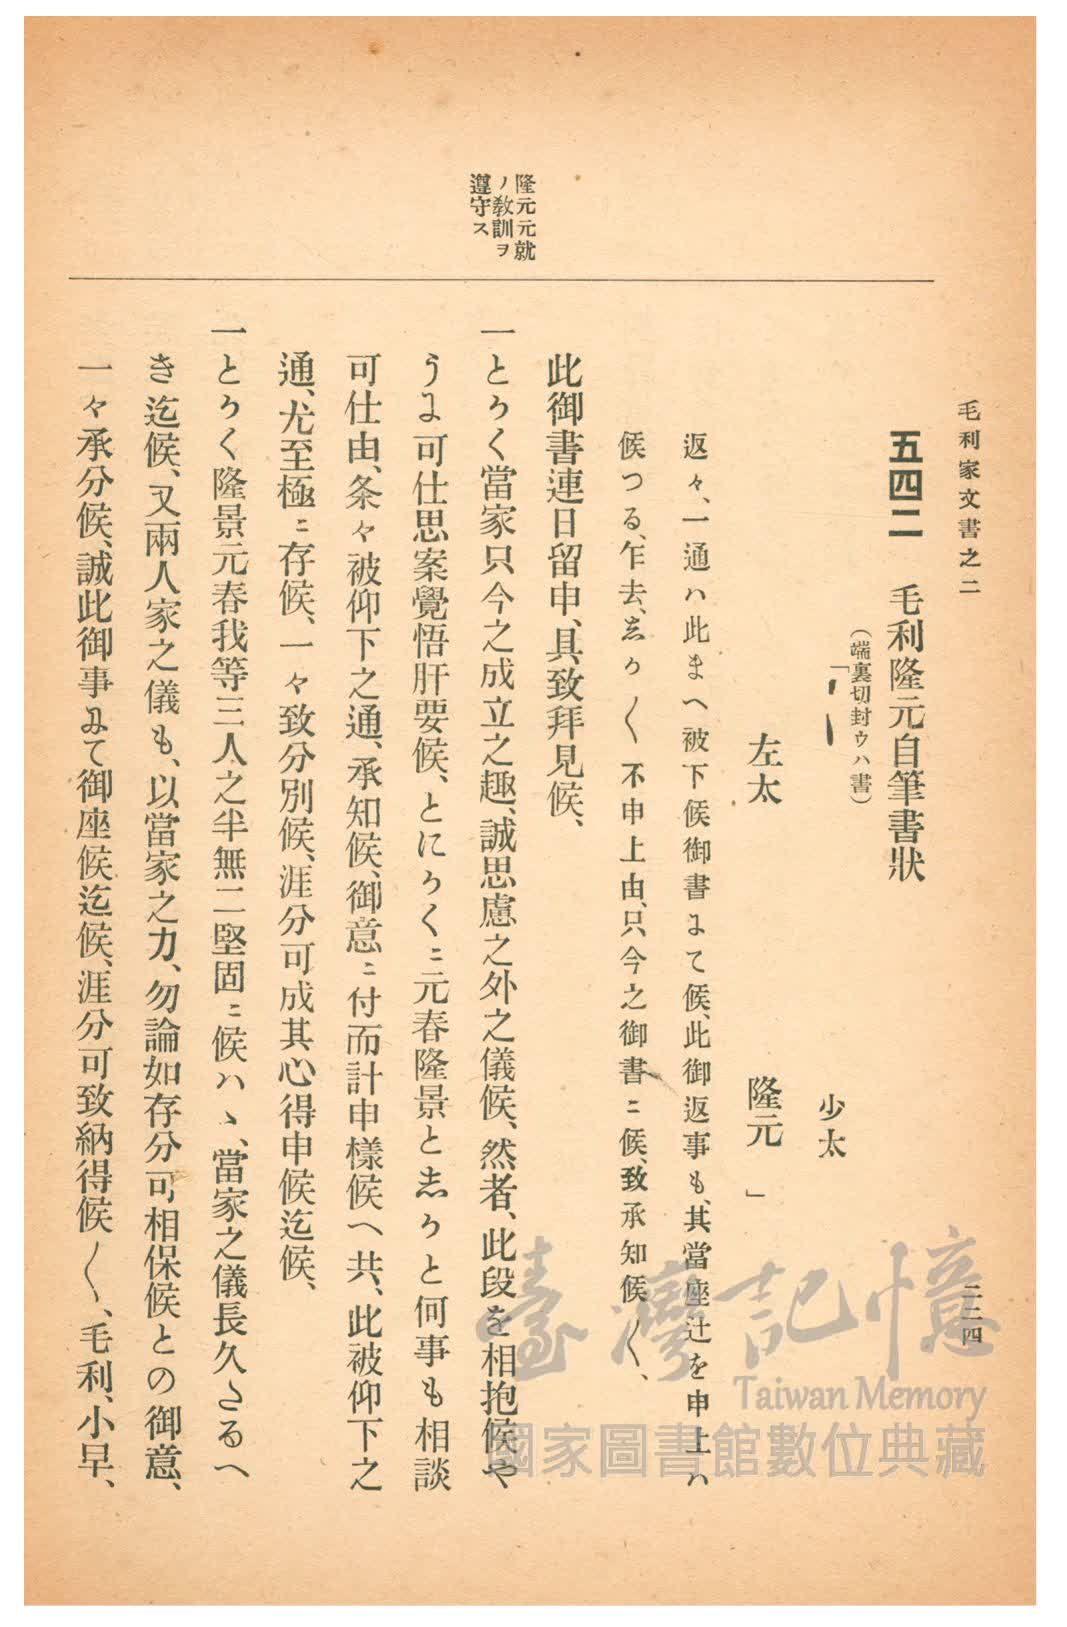 毛利家文書之二
二二四
五四二　毛利隆元自筆書狀
(端裏切封ウハ書)
「
少太
左太　隆元　」
返々、一通ハ此まへ被下候御書よて候、此御返事も、其當座辻を申上ハ
候つる、乍去、志かく不申上由、只今之御書ニ候、致承知候〱、
此御書連日留申、具致拜見候、
隆元元就
ノ教訓ヲ
遵守ス
一とかく當家只今之成立之趣、誠思慮之外之儀候、然者、此段を相抱候や
うよ可仕思案覺悟肝要候、とにかくニ元春隆景と志かと何事も相談
可仕由、条々被仰下之通、承知候、御意ニ付而計申樣候へ共、此被仰下之
通、尤至極ニ存候、一々致分別候、涯分可成其心得申候迄候、
一とかく隆景元春我等三人之半無二堅固ニ候ハヽ、當家之儀長久たるへ
き迄候、又兩人家之儀も、以當家之力、勿論如存分可相保候との御意、
一々承分候、誠此御事よて御座候迄候、涯分可致納得候〱、毛利、小早、
臺灣記憶
Taiwan Memory
國家圖書館數位典藏